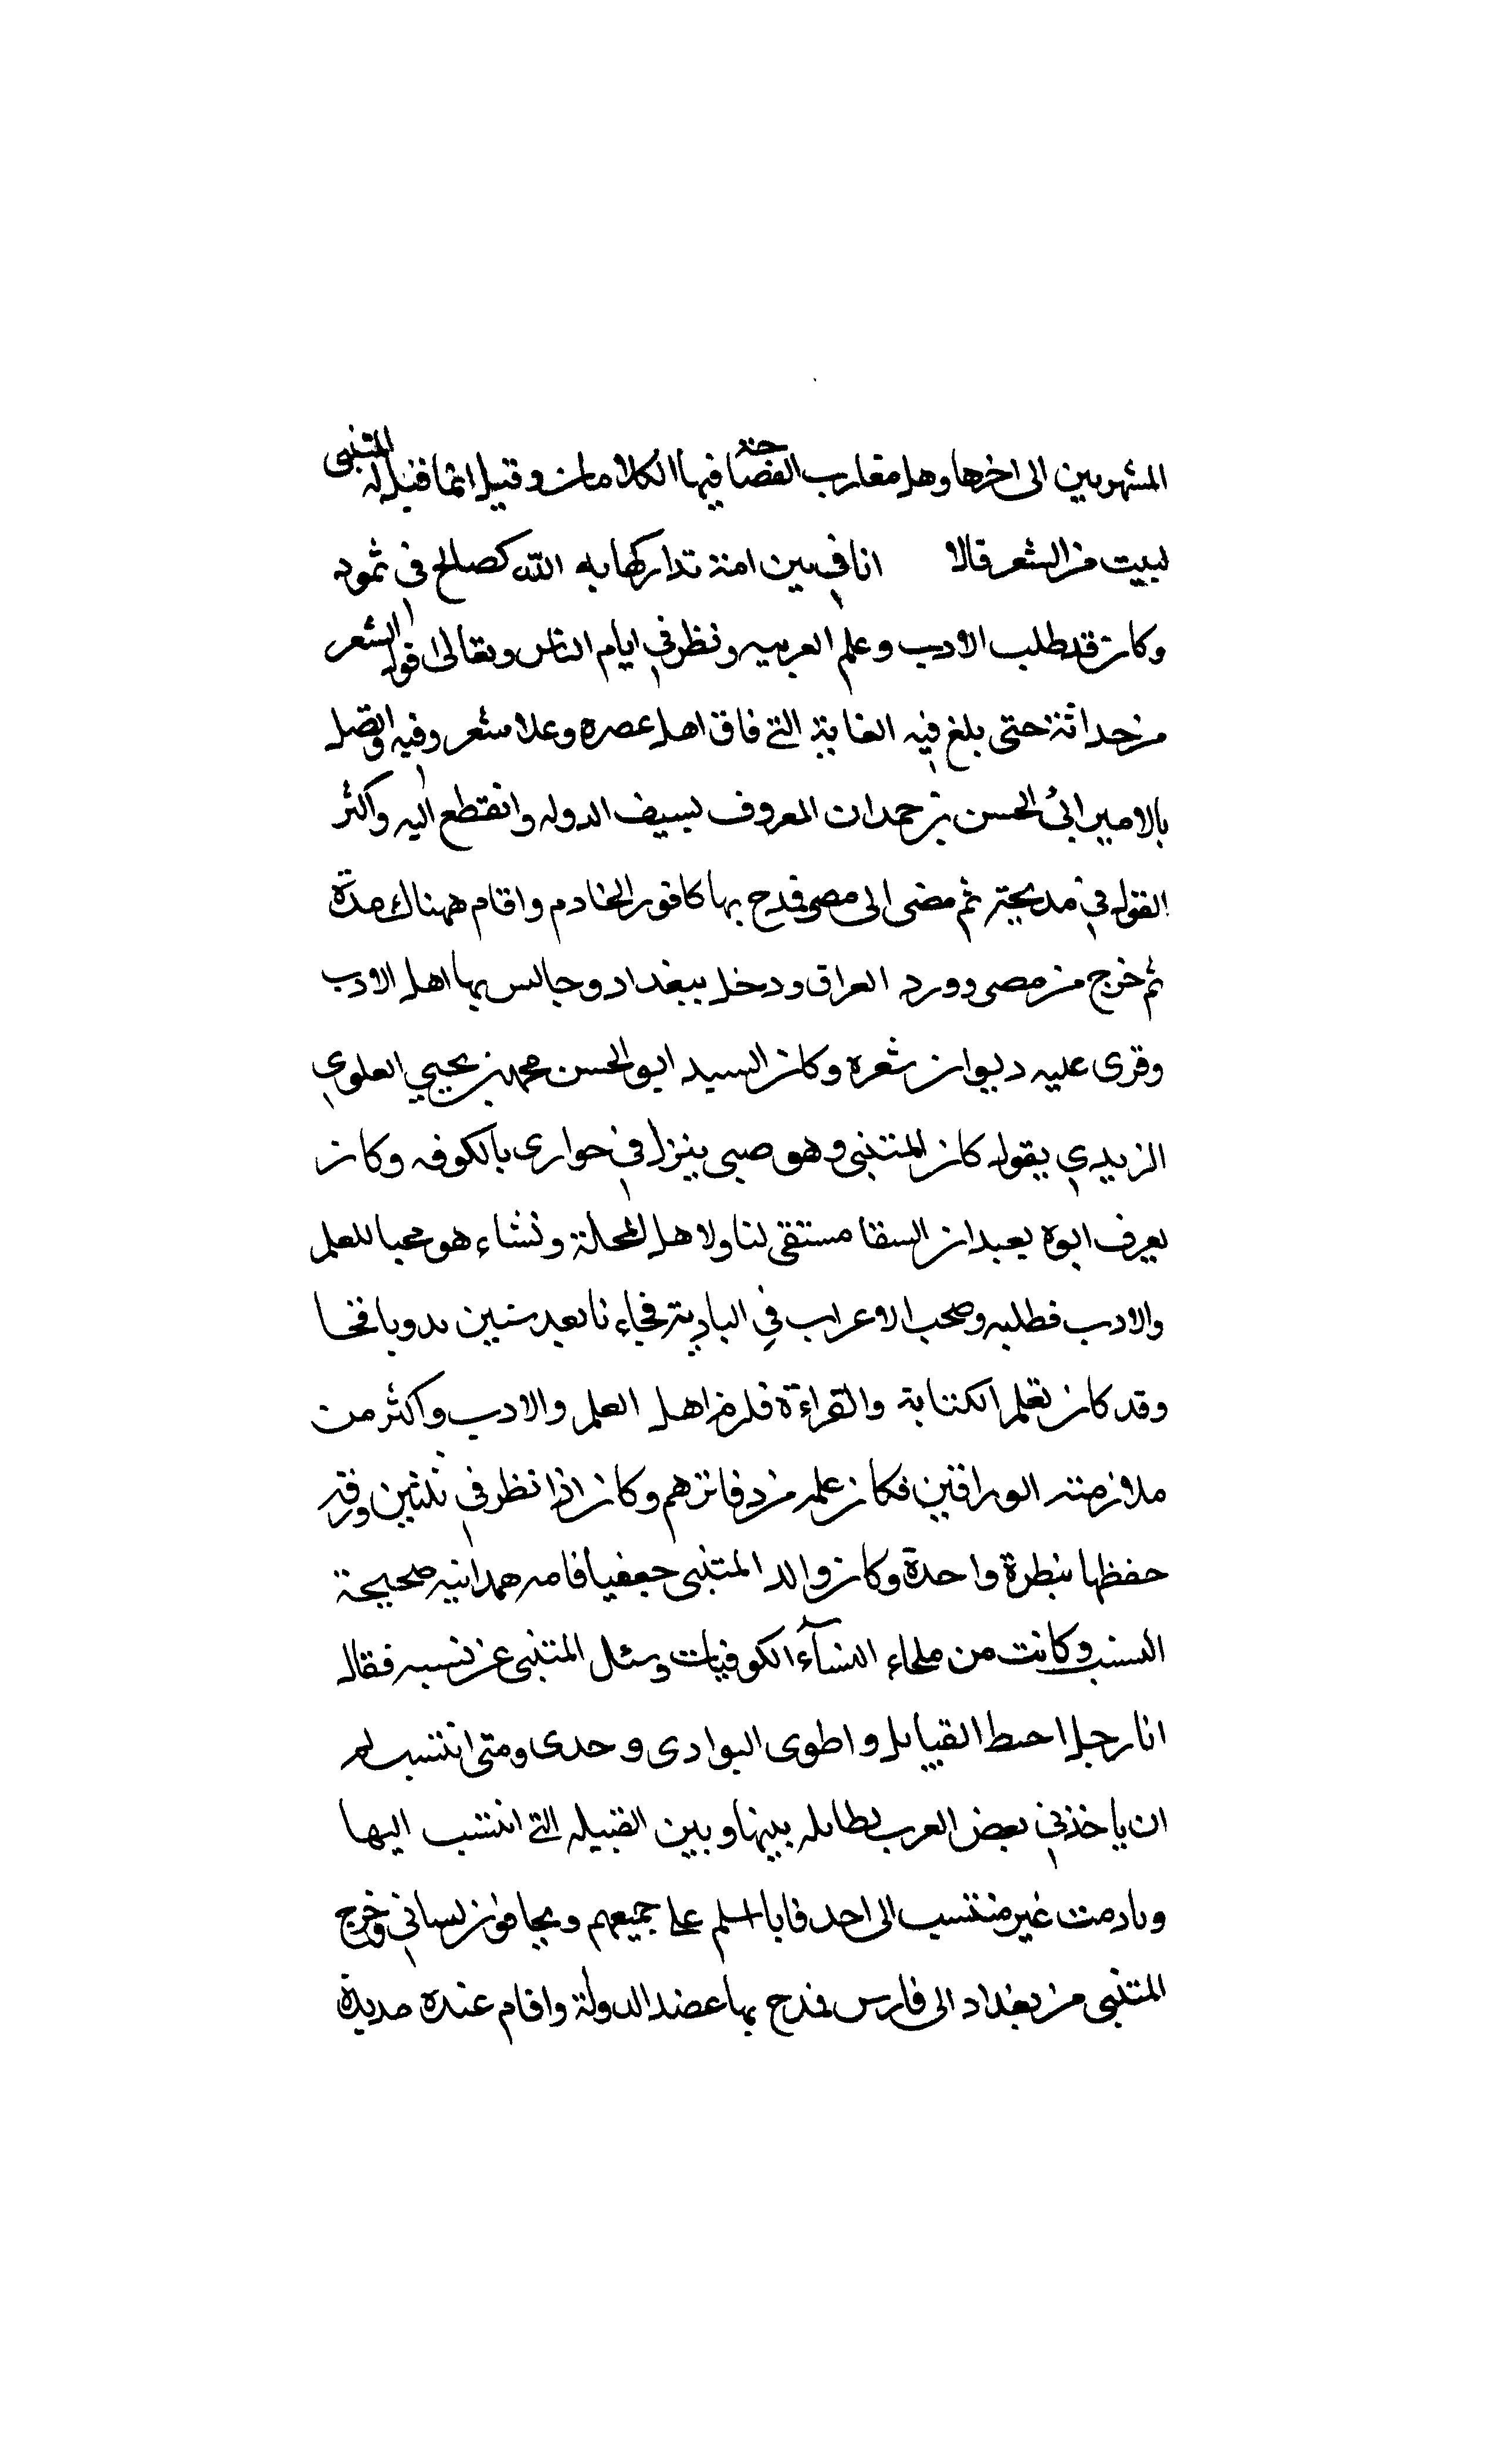 المشهوبين الى اخرها وهل مقارب الفصاحة فيها الكلامان وقيل انما قيل له المتنبى
لبيت من الشعر قالا انا فى بين امة تداركها به الله كصالح فى ثمود
وكان قد طلب الادب وعلم العربيه ونظر في ايام الناس وتعالى قول الشعر
من حداثة حتى بلغ فيه الغاية التي فاق اهل عصره وعلا شعروفيه واتصل
بالامير ابى الحسن بن حمدان المعروف بسيف الدوله وانقطع اليه واكثر
القول في مديحته ثم مضى الى مصر فمدح بها كافور الخادم واقام هناك مدة
ثم خرج من مصر وورد العراق ودخل ببغداد وجالس بها اهل الادب
وقرى عليه ديوان شعره وكان السيد ابو الحسن محمد بن يحيي العلوي
الزيدي يقول كان المتنبى وهو صبى ينزل في جوارى بالكوفه وكان
يعرف ابوه بعبدان السقا مستقى لنا ولاهل المحلة ونشاء هو محبا للعلم
والادب فطلبه وصحب الاعراب في البادية فجاءنا بعد سنين بدويا فحا
وقد كان تعلم الكتابة والقراءة فلزم اهل العلم والادب واكثر من
ملازمته الوراقين فكان علمه من دفاترهم وكان اذا نظر في ثلثين ورقه
حفظها بنظرة واحدة وكان والد المتنبى جعفيا فامه همدانيه صحيحة
النسب وكانت من صلحاء النسآء الكوفيات وسئل المتنبى عن نسبه فقال
انا رجل احبط القبايل واطوى البوادى وحدى ومتى انتسبت لم
ان ياخذني بعض العرب بطايله بينها وبين القبيله التي انتسب اليها
ومادمت غير منتسب الى احد فانا اسلم على جميعهم ويخافون لساني وخرج
المتنبى من بغداد الى فارس فمدح بها عضد الدولة واقام عنده مديدة